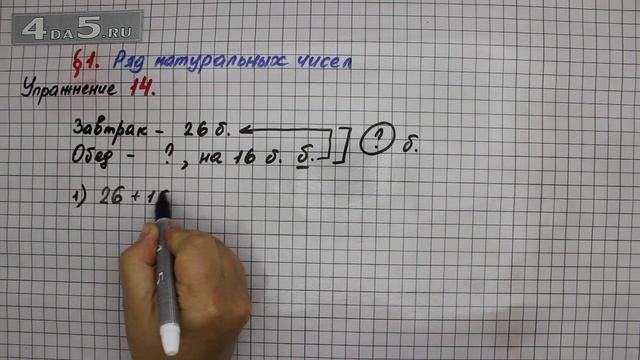 4DA5.RU
§1. Ряд натуральных чисел
Упражнение 14.
Завтрак – 26 б.
Обед – ?, на 16 б. б.
? б.
1) 26 + 1